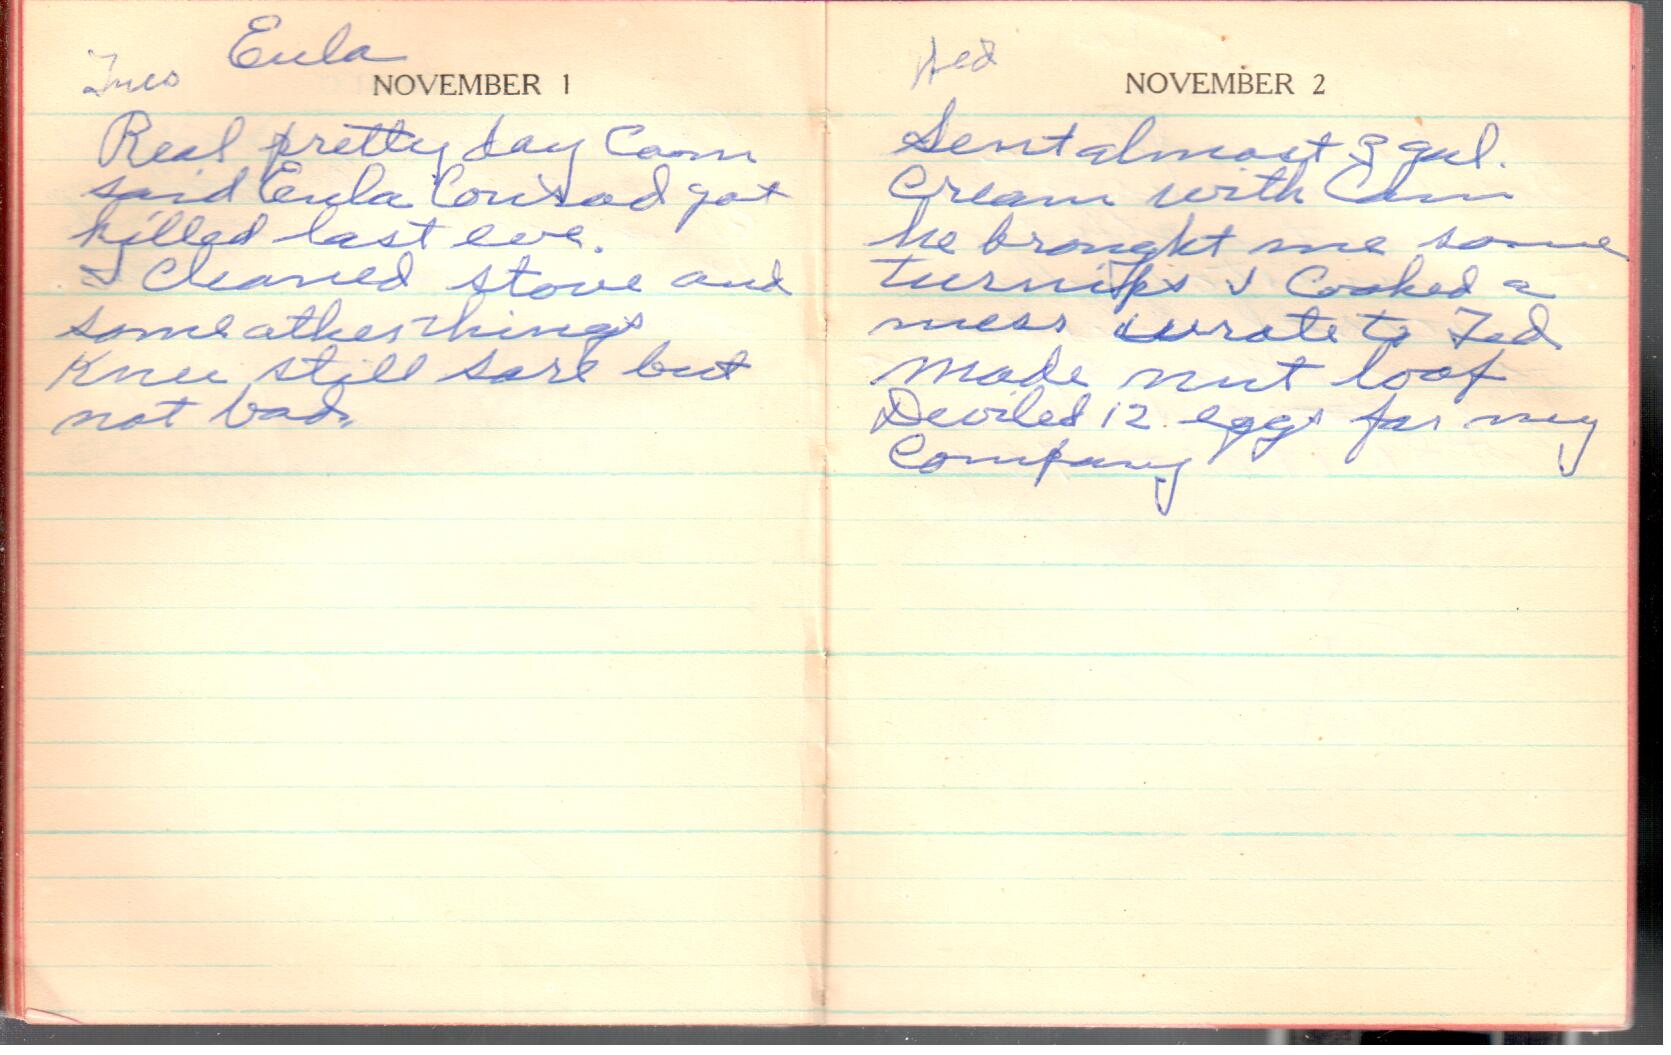 Eula
Tues
NOVEMBER 1
Real pretty day Cam
said Eula Conrad got
killed last eve.
I cleaned stove and
some other things
Knee still sore but
not bad.
Wed
NOVEMBER 2
Sent almost gal.
cream with Cam
he brought me some
turnips I cooked a
mess wrote to Ted
made nut loaf
Deviled 12 eggs for my
Company